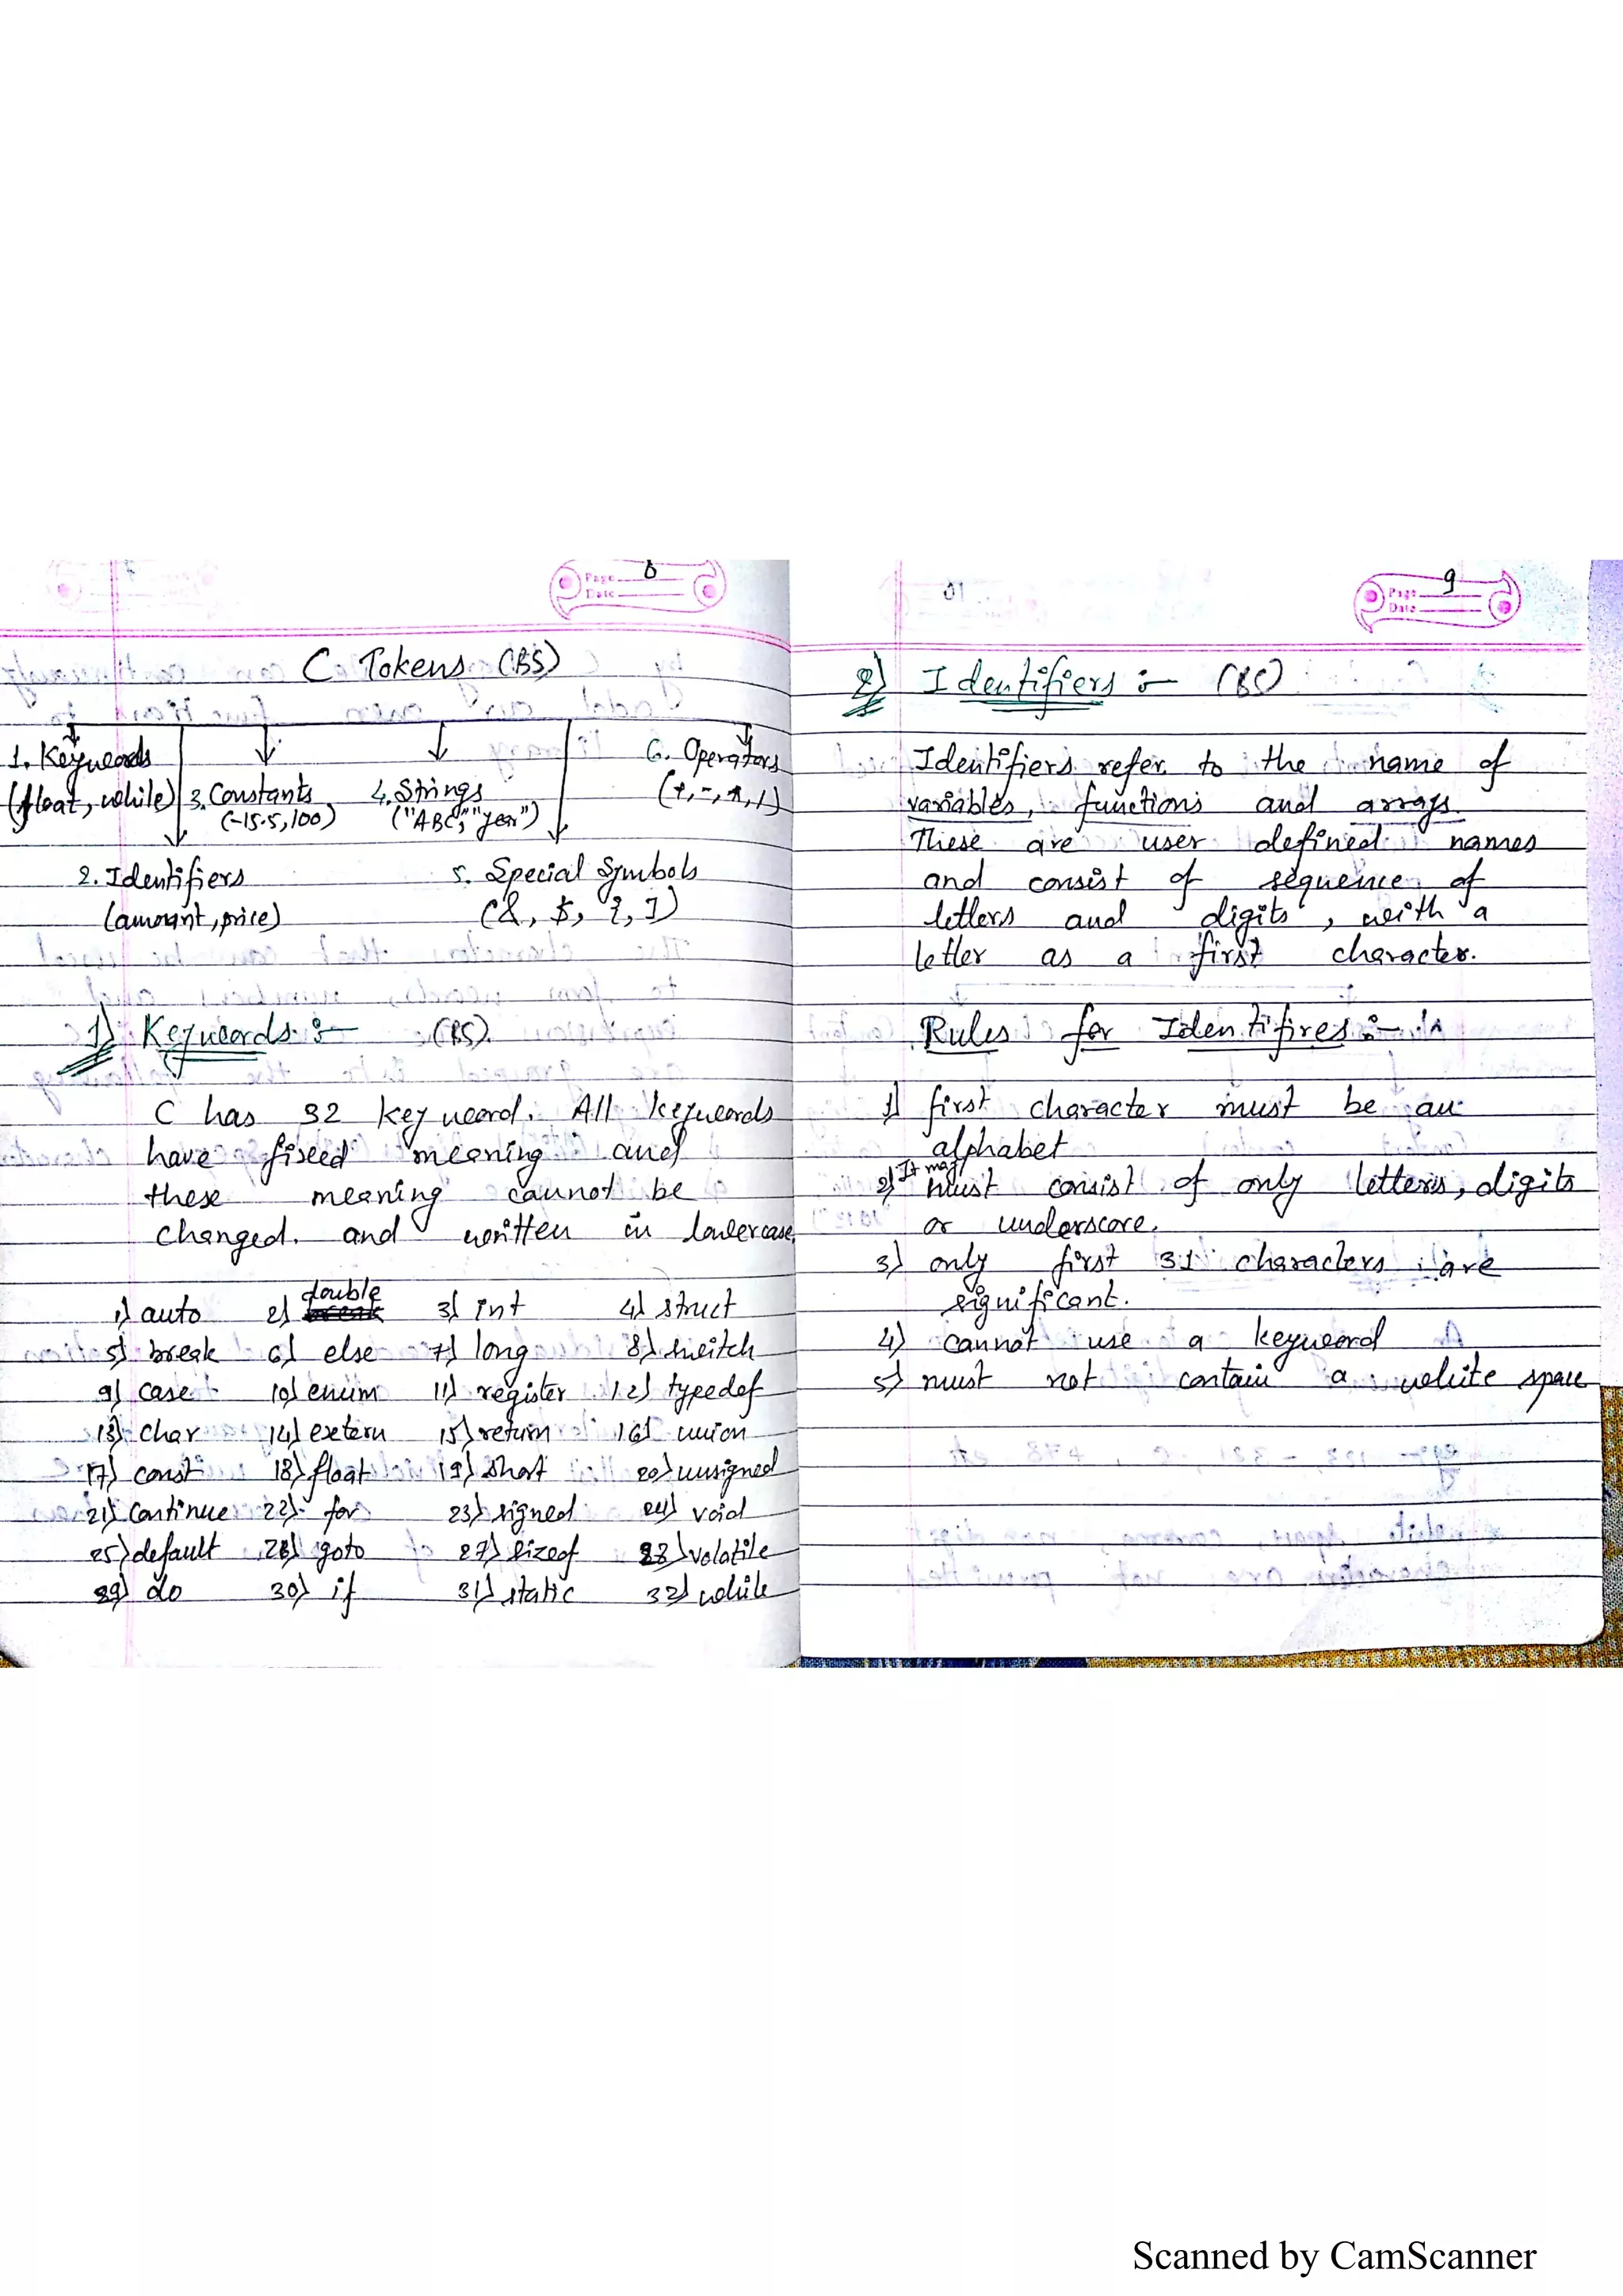 Page 8
Date
C Tokens (BS)
1. Keywords
(float, while)
3. Constants
(-15.5, 100)
4. Strings
("ABC", "year")
6. Operators
(+, -, *, /)
2. Identifiers
(amount, price)
5. Special Symbols
1) Keywords :- (BS)
C has 32 keyword. All keywords
have fixed meaning and
these meaning cannot be
changed. and written in lowercase.
1) auto 2) double 3) int 4) struct
5) break 6) else 7) long 8) switch
9) case 10) enum 11) register 12) typedef
13) char 14) extern 15) return 16) union
17) const 18) float 19) short 20) unsigned
21) continue 22) for 23) signed 24) void
25) default 26) goto 27) sizeof 28) volatile
29) do 30) if 31) static 32) while
Page 9
Date
2) Identifiers :-
Identifiers refer to the name of
variables, functions and arrays.
These are user defined names
and consist of sequence of
letters and digits, with a
letter as a first character.
Rules for Identifires :-
1) first character must be an
alphabet
2) It may must consist of only letters, digits
or underscore.
3) only first 31 characters are
significant.
4) cannot use a keyword
5) must not contain a white space
Scanned by CamScanner